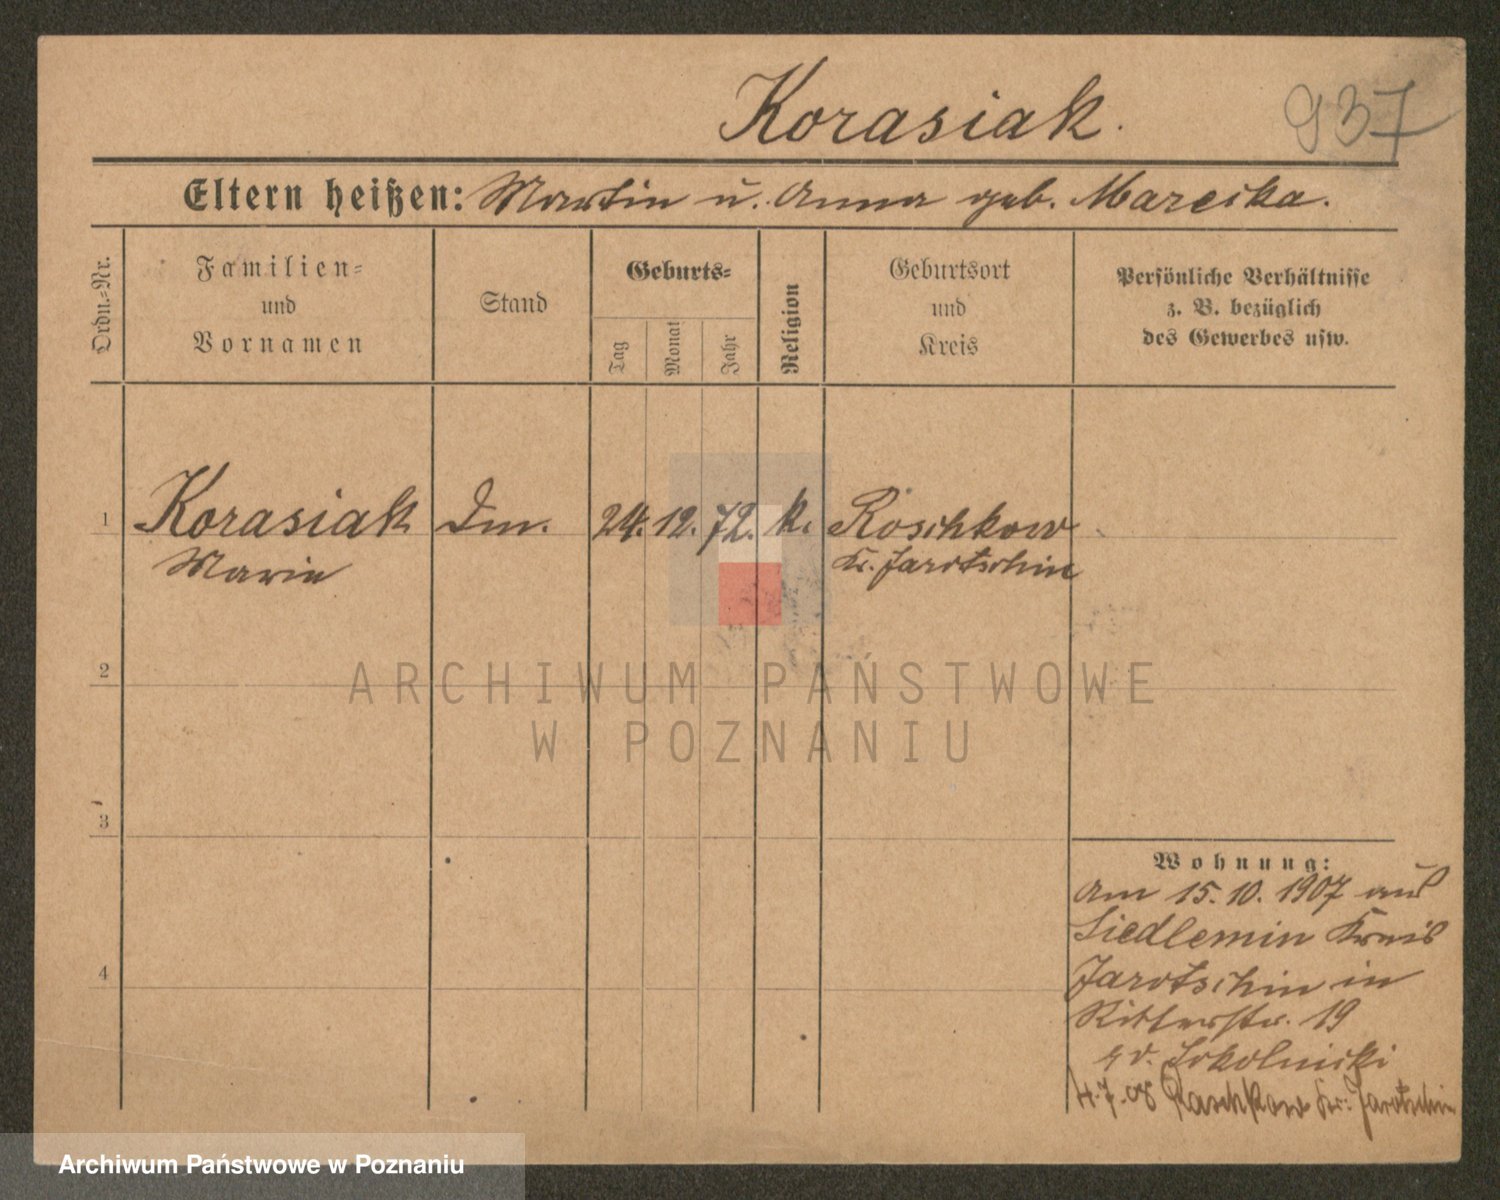 Korasiak.
937
Eltern heißen: Martin u. Anna geb. Marcika.
Ordn.=Nr.
Familien=
und
Vornamen
Stand
Geburts=
Tag
Monat
Jahr
Religion
Geburtsort
und
Kreis
Persönliche Verhältnisse
z. B. bezüglich
des Gewerbes usw.
1 Korasiak 24. 12. 72. k. Roschkow
Marie Kr. Jarotschin
2
3
4
Wohnung:
am 15. 10. 1907 aus
Siedlemin Kreis
Jarotschin in
Ritterstr. 19
Sokolnicki
4.7.08 Raschkow Kr. Jarotschin
ARCHIWUM PAŃSTWOWE
W POZNANIU
Archiwum Państwowe w Poznaniu